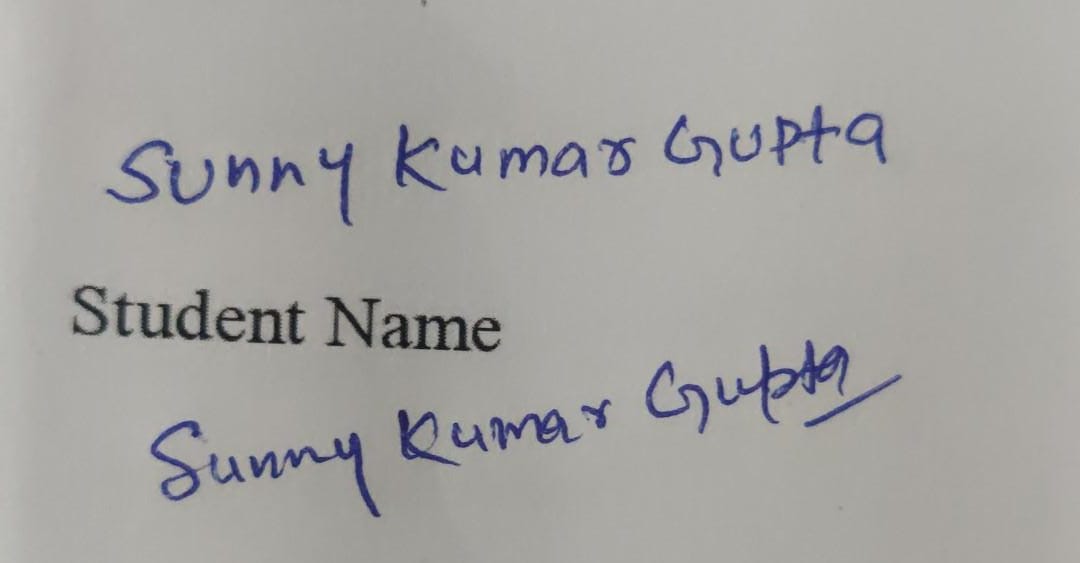 Sunny Kumar Gupta
Student Name
Sunny Kumar Gupta